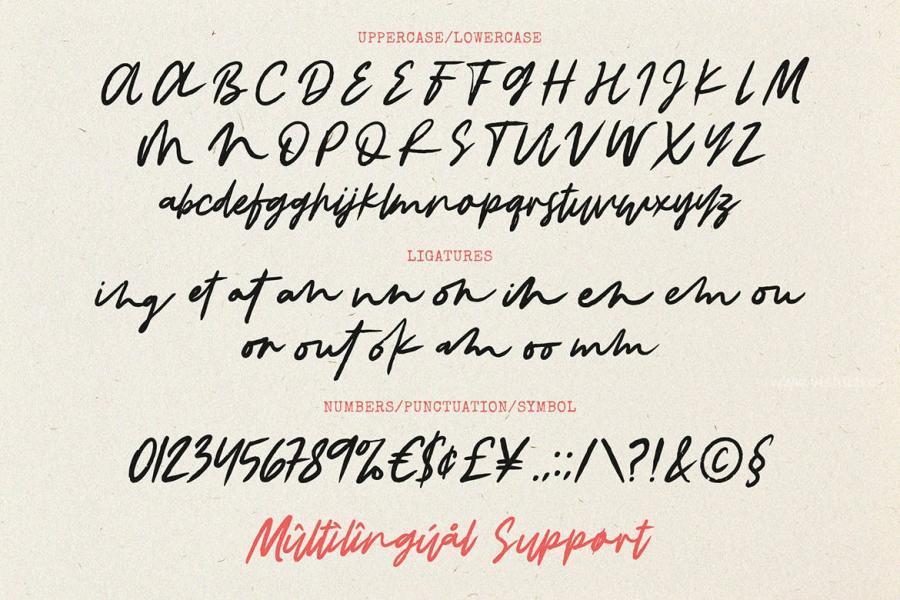 UPPERCASE/LOWERCASE
A A B C D E E F F G H H I J K L M
M N O P Q R S T U V W X Y Z
abcdefgghijklmnopqrstuvwxyyz
LIGATURES
ing et at an nn on in en em ou
or out ok am oo mm
NUMBERS/PUNCTUATION/SYMBOL
0123456789%€$¢£¥.,:;/\?!&©§
Mûltïlîngúål Support